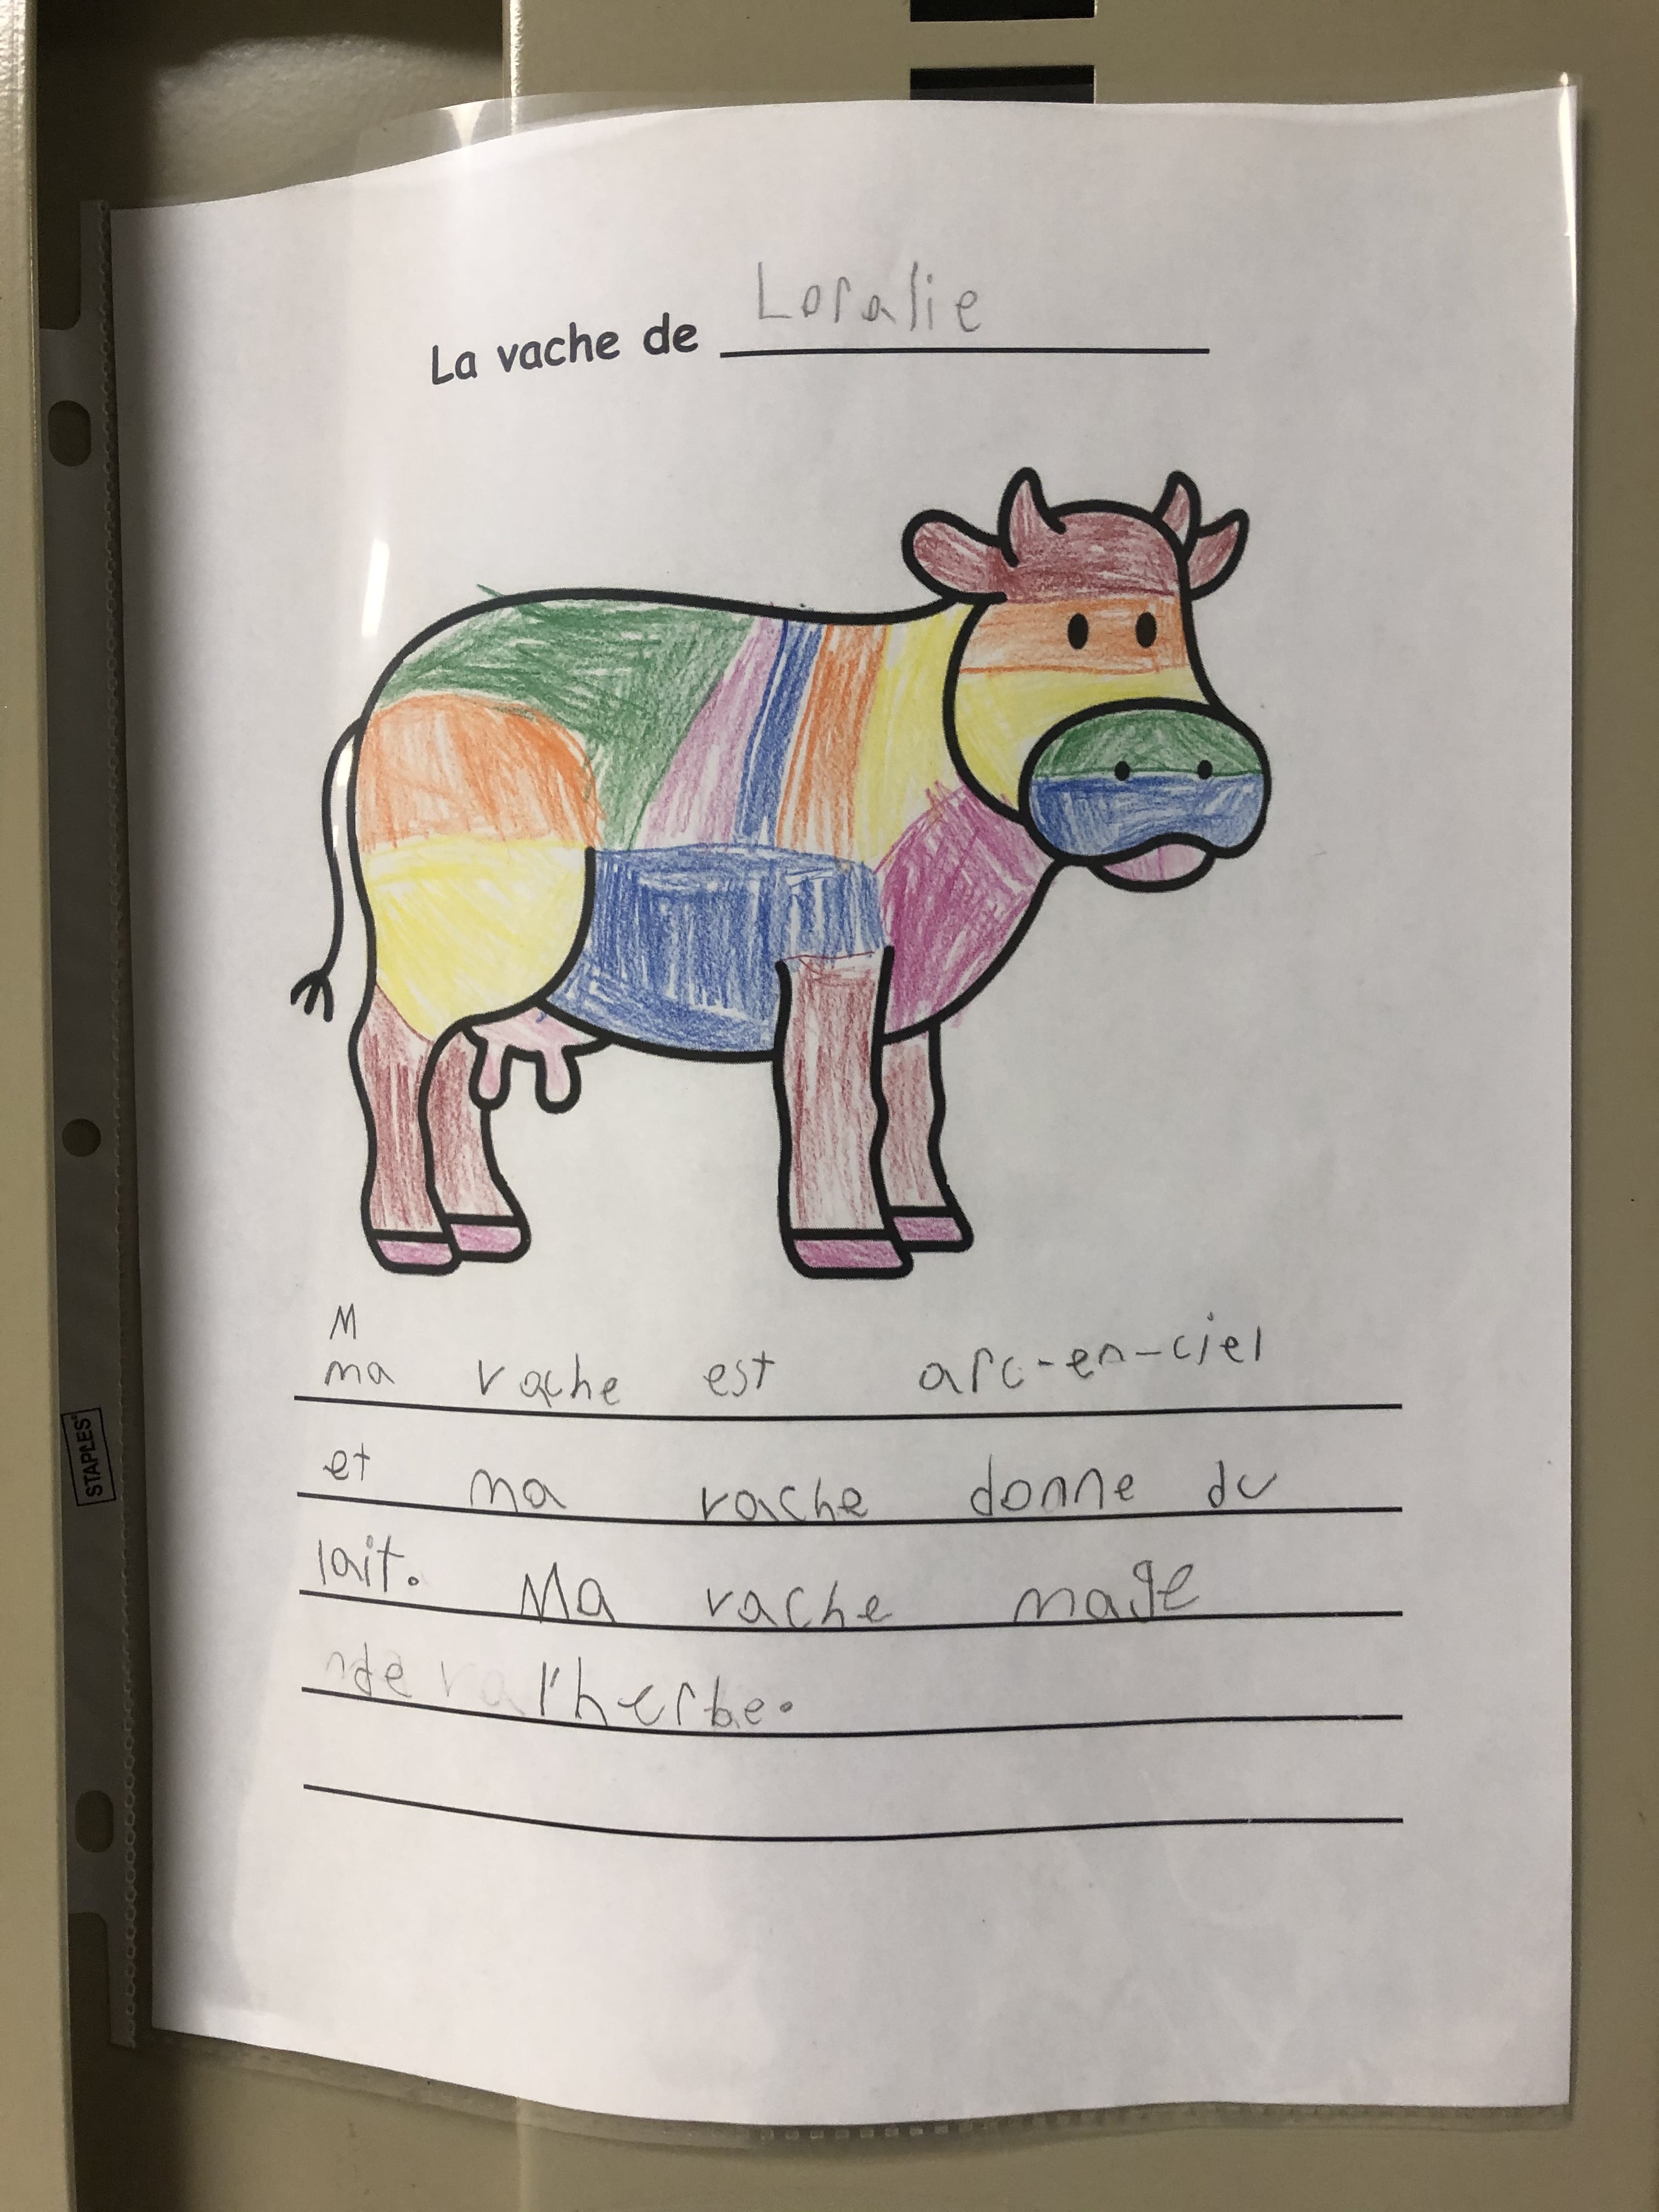 La vache de Loralie
M
ma vache est arc-en-ciel
et ma vache donne du
lait. Ma vache mage
de l'herbe.
STAPLES